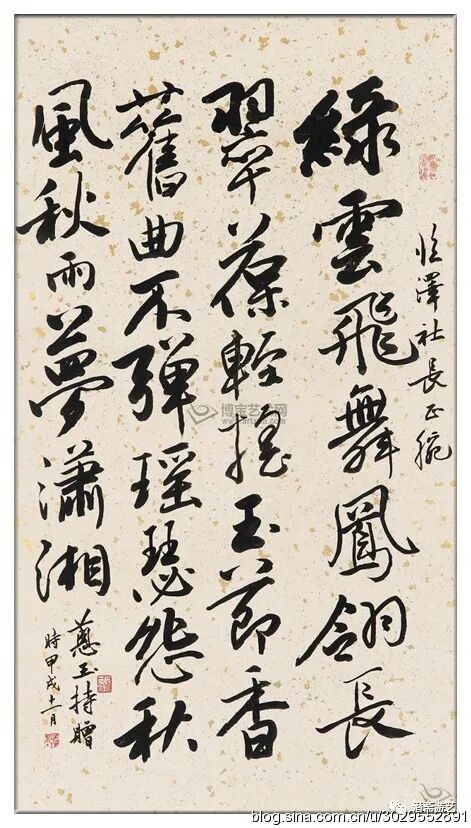 澤社長正腕
綠雲飛舞鳳翎長
翠葆輕搖玉節香
舊曲不彈瑤瑟怨秋
風秋雨夢瀟湘
蕙玉持贈
時甲戌十一月
博宝艺术网
blog.sina.com.cn/u/3029552891